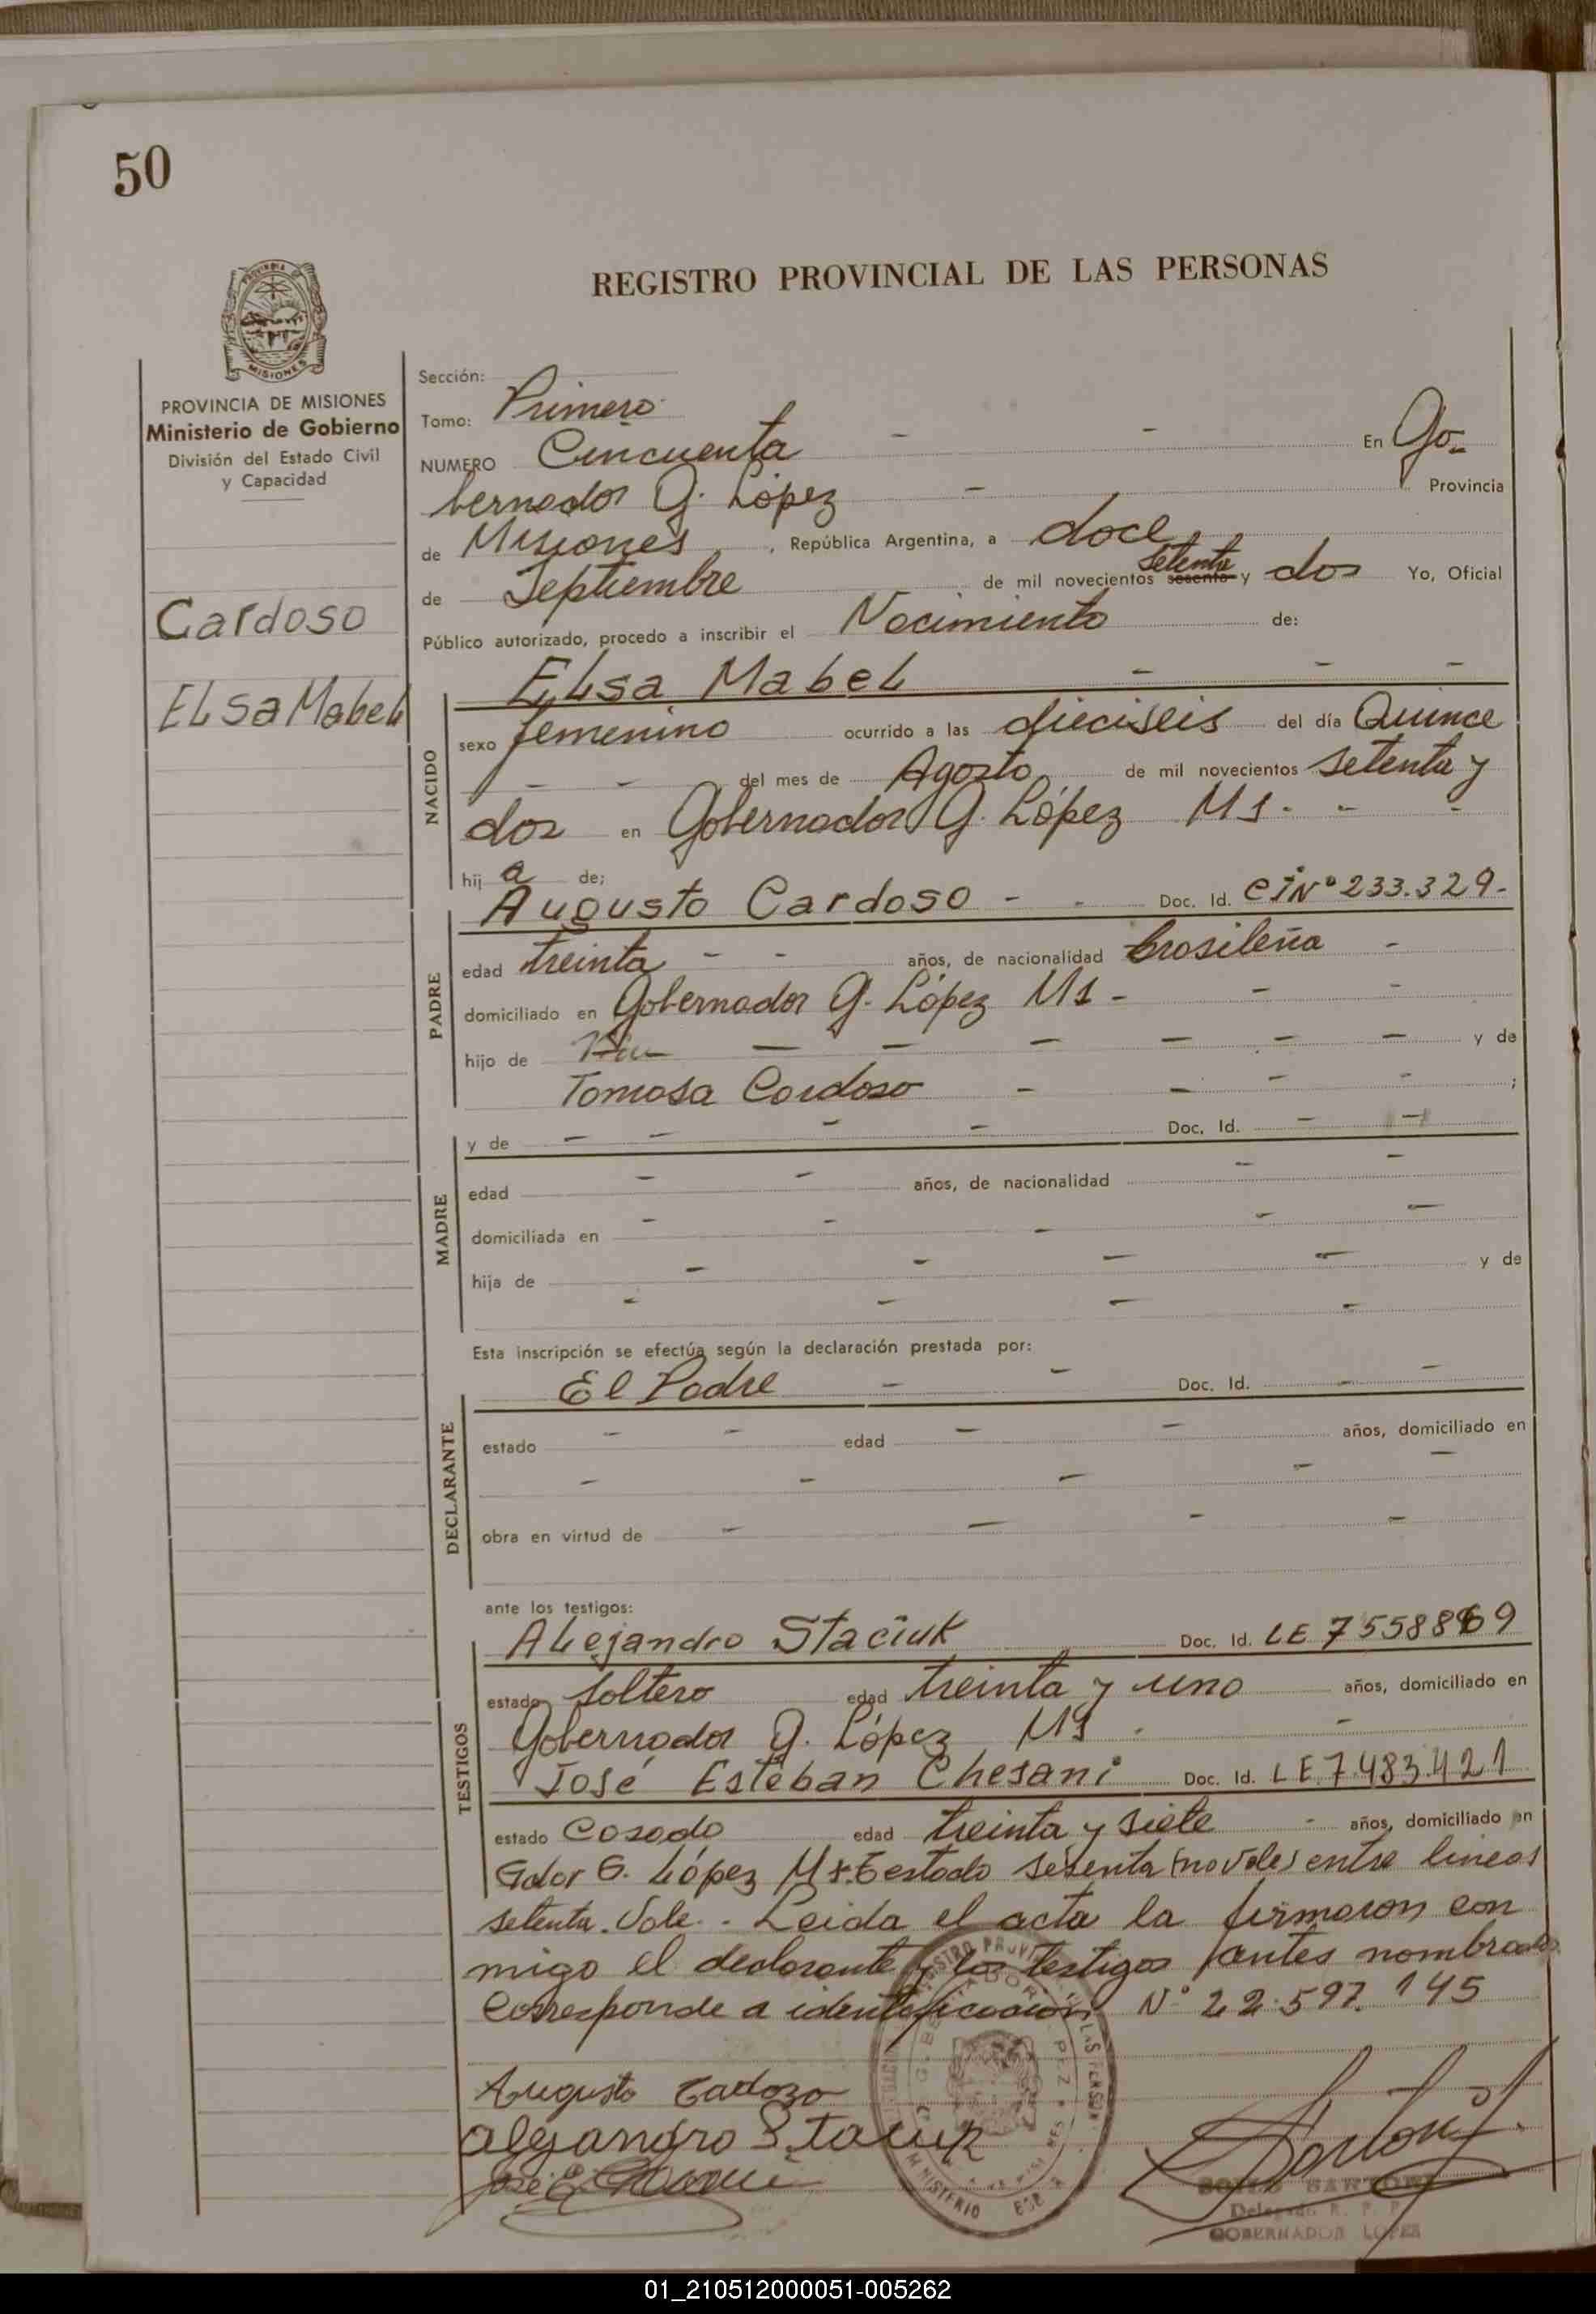 50
REGISTRO PROVINCIAL DE LAS PERSONAS
PROVINCIA DE MISIONES
Ministerio de Gobierno
División del Estado Civil
y Capacidad
Cardoso
Elsa Mabel
Sección:
Tomo: Primero
NUMERO Cincuenta - - En Go-
bernador G. López - Provincia
de Misiones, República Argentina, a doce
de Septiembre de mil novecientos sesenta setenta y dos Yo, Oficial
Público autorizado, procedo a inscribir el Nacimiento de:
Elsa Mabel - - -
NACIDO
sexo femenino ocurrido a las dieciseis del día Quince
- - del mes de Agosto de mil novecientos setenta y
dos en Gobernador G. López Ms. - -
hij a de;
Augusto Cardoso - - Doc. Id. CI Nº 233.329-
PADRE
edad treinta - - años, de nacionalidad brasileña -
domiciliado en Gobernador G. López Ms - - -
hijo de - - - - - - y de
Tomasa Cardoso - - - - ;
MADRE
y de - - - - Doc. Id. - -
edad - - años, de nacionalidad - -
domiciliada en - - - - -
hija de - - - - y de
- - - -
Esta inscripción se efectúa según la declaración prestada por:
El Padre - - Doc. Id. - -
DECLARANTE
estado - - edad - - años, domiciliado en
- - - - -
obra en virtud de - - - -
ante los testigos:
Alejandro Staciuk Doc. Id. LE 7558869
TESTIGOS
estado soltero edad treinta y uno años, domiciliado en
Gobernador G. López Ms - -
José Esteban Chesani Doc. Id. LE.7.483.421
estado Casado edad treinta y siete - años, domiciliado en
Gdor G. López Ms. Testado sesenta (no vale) entre lineas
setenta. Vale. - Leida el acta la firmaron con
migo el declarante y los testigos antes nombrados
Corresponde a identificación Nº 22.597.145
Augusto Cardozo
alejandro Staciuk
José E.
SARTORI
Delegado R. P. P.
GOBERNADOR LOPEZ
01_210512000051-005262